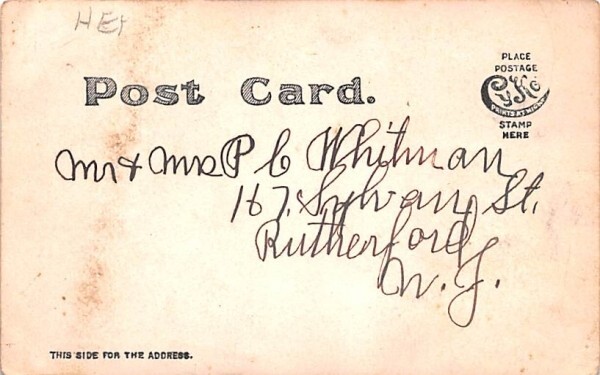 HEx
Post Card.
PLACE
POSTAGE
STAMP
HERE
Mr & Mrs P C Whitman
167 Sylvan St.
Rutherford
N. J.
THIS SIDE FOR THE ADDRESS.